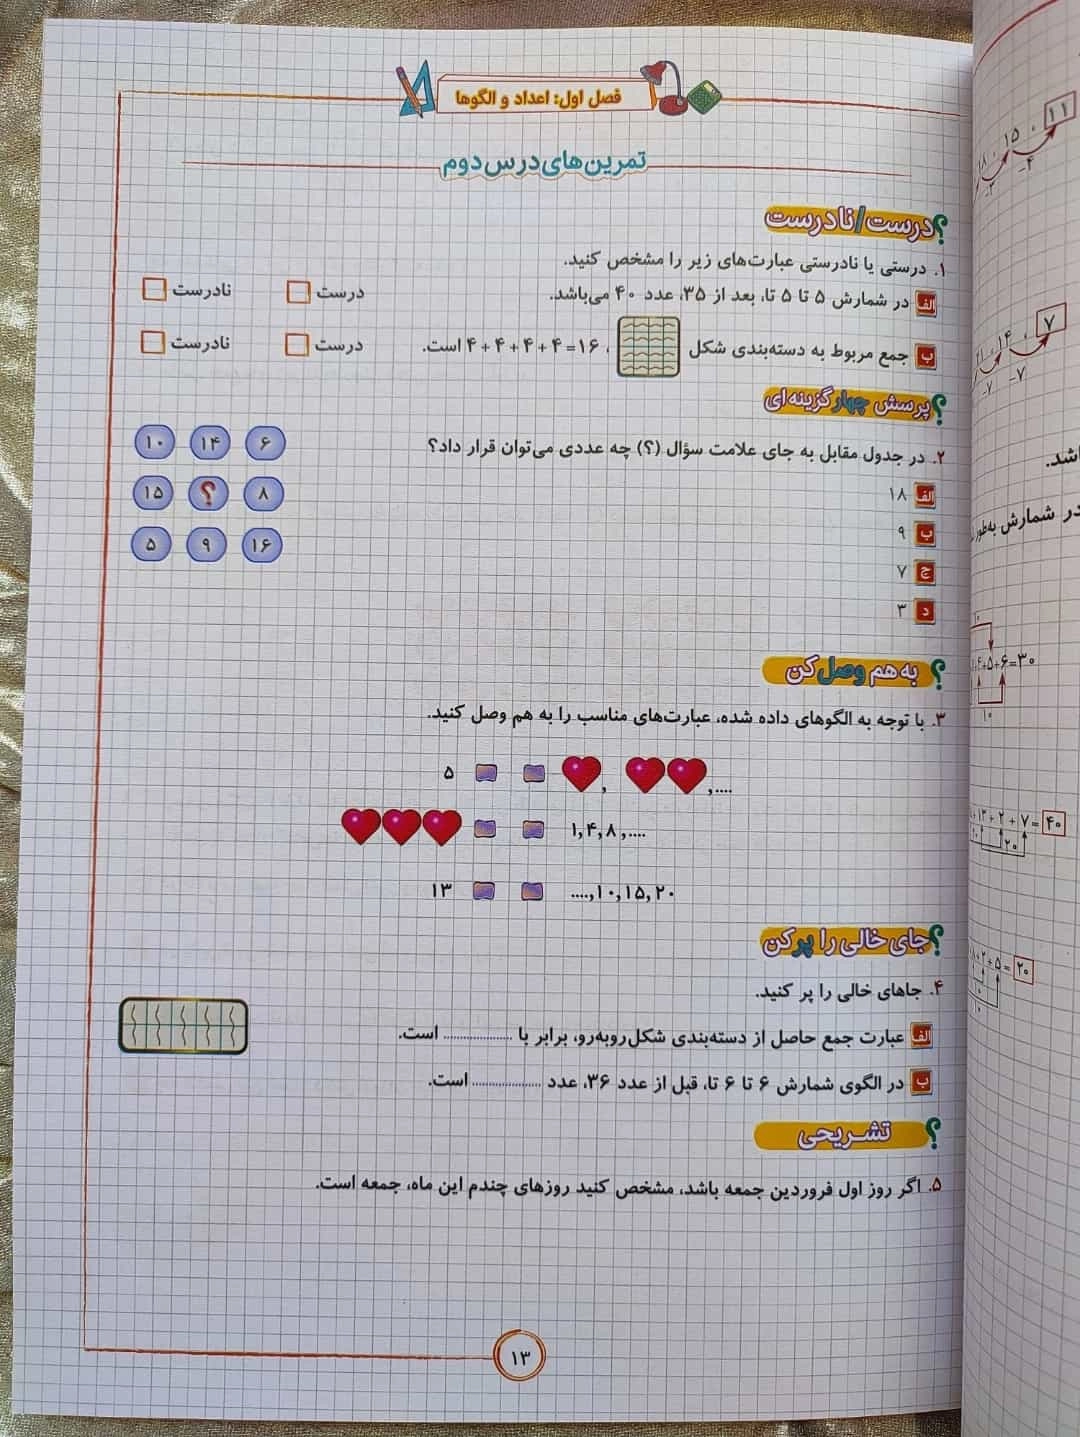 فصل اول: اعداد و الگوها
تمرین‌های درس دوم
درست/نادرست؟
۱. درستی یا نادرستی عبارت‌های زیر را مشخص کنید.
الف در شمارش ۵ تا ۵ تا، بعد از ۳۵، عدد ۴۰ می‌باشد. درست نادرست
ب جمع مربوط به دسته‌بندی شکل ، ۱۶=۴+۴+۴+۴ است. درست نادرست
پرسش چهارگزینه‌ای؟
۲. در جدول مقابل به جای علامت سؤال (؟) چه عددی می‌توان قرار داد؟
الف ۱۸
ب ۹
ج ۷
د ۳
۱۰ ۱۴ ۶
۱۵ ؟ ۸
۵ ۹ ۱۶
به هم وصل کن؟
۳. با توجه به الگوهای داده شده، عبارت‌های مناسب را به هم وصل کنید.
۵ , ,....
۱,۴,۸,....
۱۳ ....,۱۰,۱۵,۲۰
جای خالی را پر کن؟
۴. جاهای خالی را پر کنید.
الف عبارت جمع حاصل از دسته‌بندی شکل روبه‌رو، برابر با .................. است.
ب در الگوی شمارش ۶ تا ۶ تا، قبل از عدد ۳۶، عدد .................. است.
تشریحی؟
۵. اگر روز اول فروردین جمعه باشد، مشخص کنید روزهای چندم این ماه، جمعه است.
۱۳
۱۵ ، ۱۱
-۴
۱۴ ، ۷
-۷ -۷
باشد.
در شمارش به‌طور
+۵+۶=۳۰
۱۰
+۱۳+۲+۷=۴۰
۲۰
+۲+۵=۲۰
۱۰